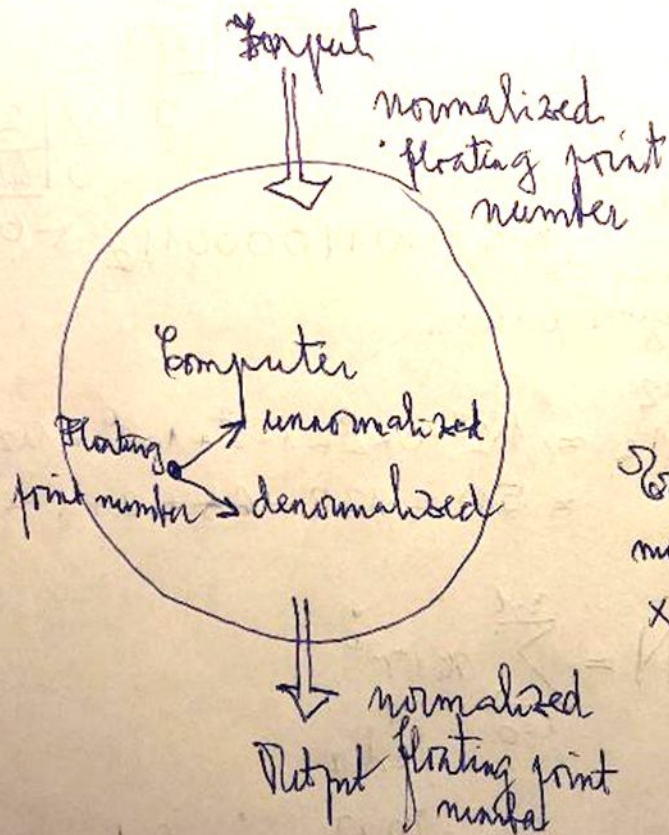 Input
normalized
floating point
number
Computer
Floating
point number
unnormalized
denormalized
x
normalized
Output floating point
number